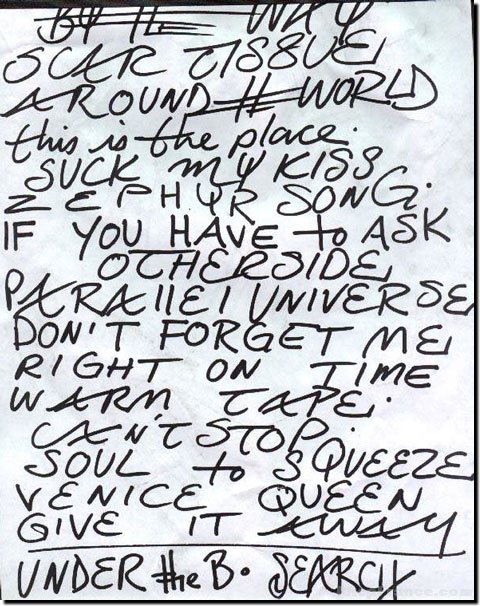 BY the WAY
SCAR TISSUE
AROUND the WORLD
this is the place.
SUCK MY KISS
ZEPHYR SONG.
IF YOU HAVE to ASK
OTHERSIDE
PARAllEl UNIVERSE
DON'T FORGET ME
RIGHT ON TIME
WARM TAPE.
CAN'T STOP.
SOUL to SQUEEZE
VENICE QUEEN
GIVE IT AWAY
UNDER the B. SEARCH